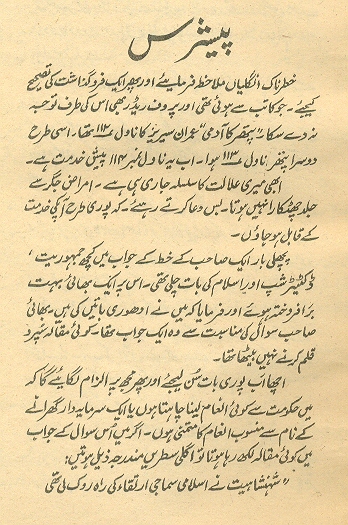 پیشرس
خطرناک انگلیاں ملاحظہ فرمایئے اور پھر ایک فروگذاشت کی تصحیح
کیجئے۔ جو کاتب سے ہوئی تھی اور پروف ریڈر بھی اس کی طرف توجہ
نہ دے سکا۔ "پتھر کا آدمی" عمران سیریز کا ناول ۱۱۲ تھا۔ اسی طرح
دوسرا پتھر ناول ۱۱۳ ہوا۔ اب یہ ناول نمبر ۱۱۴ پیش خدمت ہے۔
ابھی میری علالت کا سلسلہ جاری ہی ہے۔ امراض جگر سے
جلد چھٹکارا نہیں ہوتا۔ بس دعا کرتے رہیئے۔ کہ پوری طرح آپکی خدمت
کے قابل ہو جاؤں۔
پچھلی بار ایک صاحب کے خط کے جواب میں کچھ جمہوریت،
ڈکٹیٹر شپ اور اسلام کی بات چلی تھی۔ اس پر ایک بھائی بہت
برافروختہ ہوئے اور فرمایا کہ میں نے ادھوری باتیں کی ہیں۔ بھائی
صاحب سوال کی مناسبت سے وہ ایک جواب تھا۔ کوئی مقالہ سپرد
قلم کرنے نہیں بیٹھا تھا۔
اچھا اب پوری بات سُن لیجئے اور پھر مجھ پر الزام لگایئے گا کہ
میں حکومت سے کوئی انعام لینا چاہتا ہوں یا ایک سرمایہ دار گھرانے
کے نام سے منسوب انعام کا متمنی ہوں۔ اگر میں اُس سوال کے جواب
میں کوئی مقالہ لکھ رہا ہوتا تو اگلی سطریں مندرجہ ذیل ہوتیں:
"شہنشاہیت نے اسلامی سماجی ارتقاء کی راہ روک لی تھی